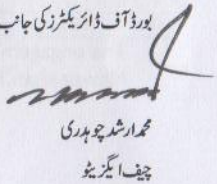 بورڈ آف ڈائریکٹرز کی جانب
محمد ارشد چوہدری
چیف ایگزیٹو